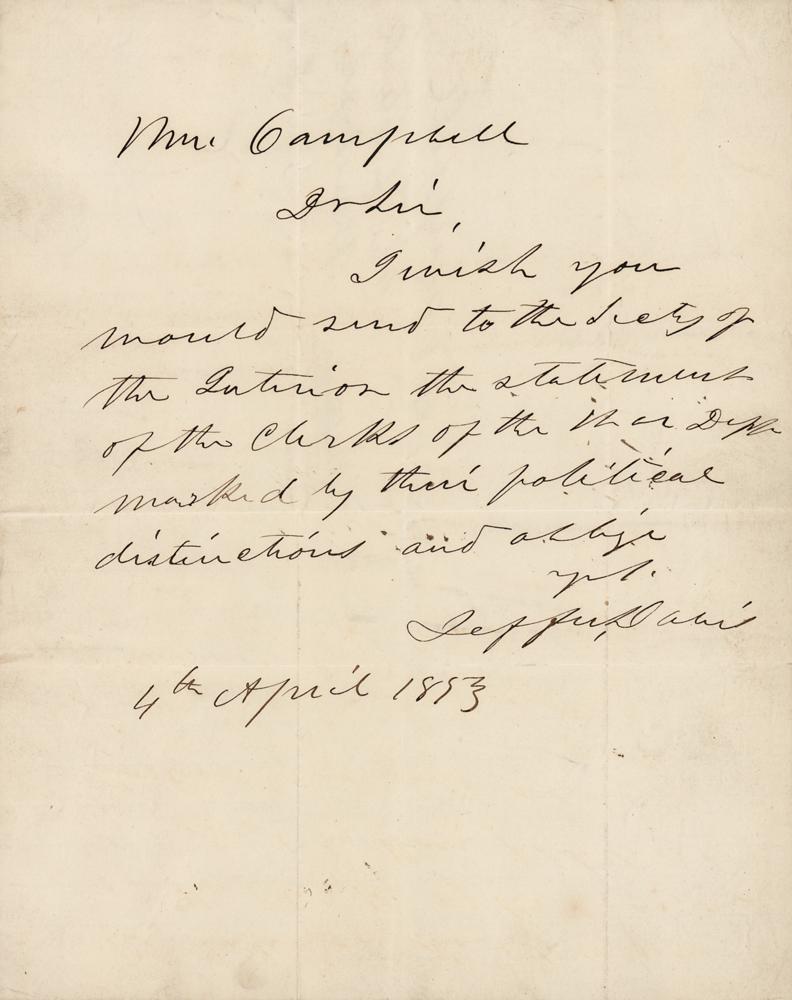 Mr. Campbell
Dr Sir,
I wish you
would send to the Secty of
the Interior the statement
of the Clerks of the War Dept
marked by their political
distinctions and oblige
yrs.
Jeffn. Davis
4th April 1853